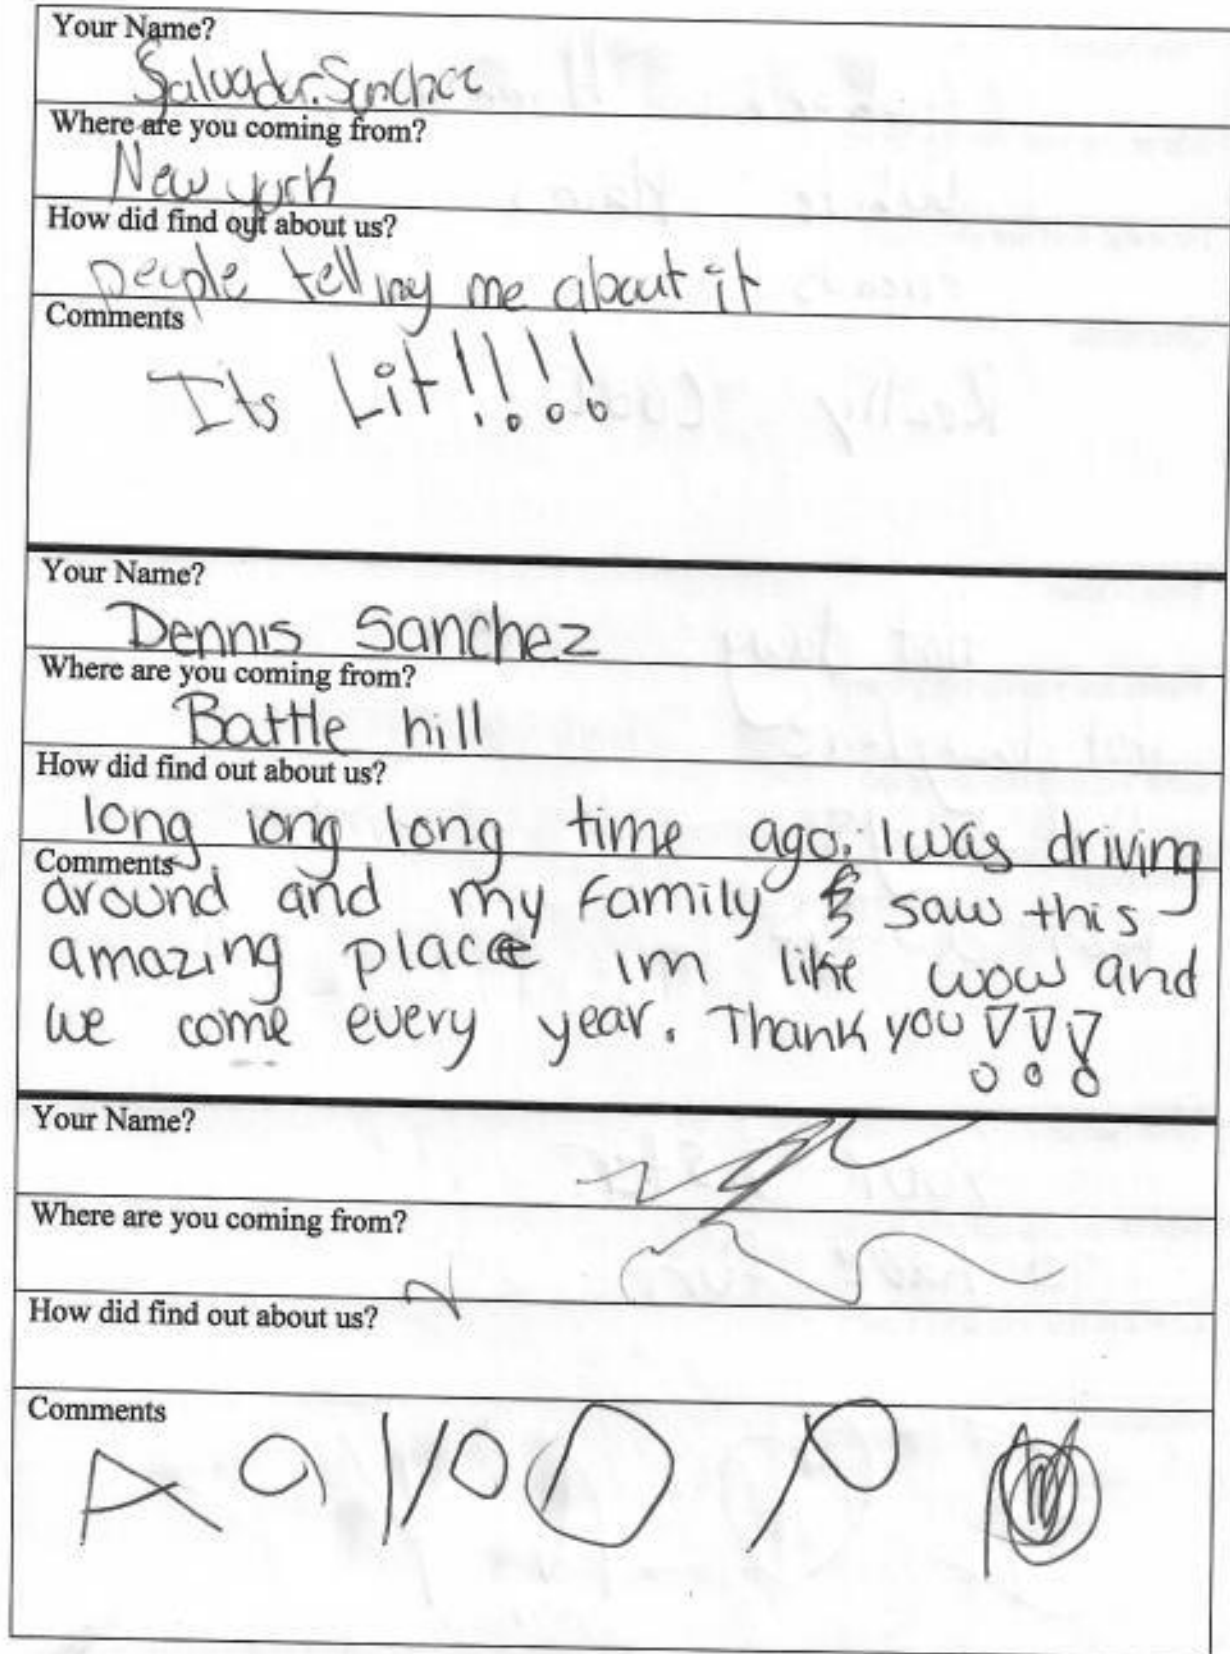 Your Name?
Salvador.Sanchez
Where are you coming from?
New york
How did find out about us?
people telling me about it
Comments
Its Lit!!!!
Your Name?
Dennis Sanchez
Where are you coming from?
Battle hill
How did find out about us?
long long long time ago. I was driving
Comments
around and my Family & saw this
amazing place im like wow and
we come every year. Thank you !!!
Your Name?
Where are you coming from?
How did find out about us?
Comments